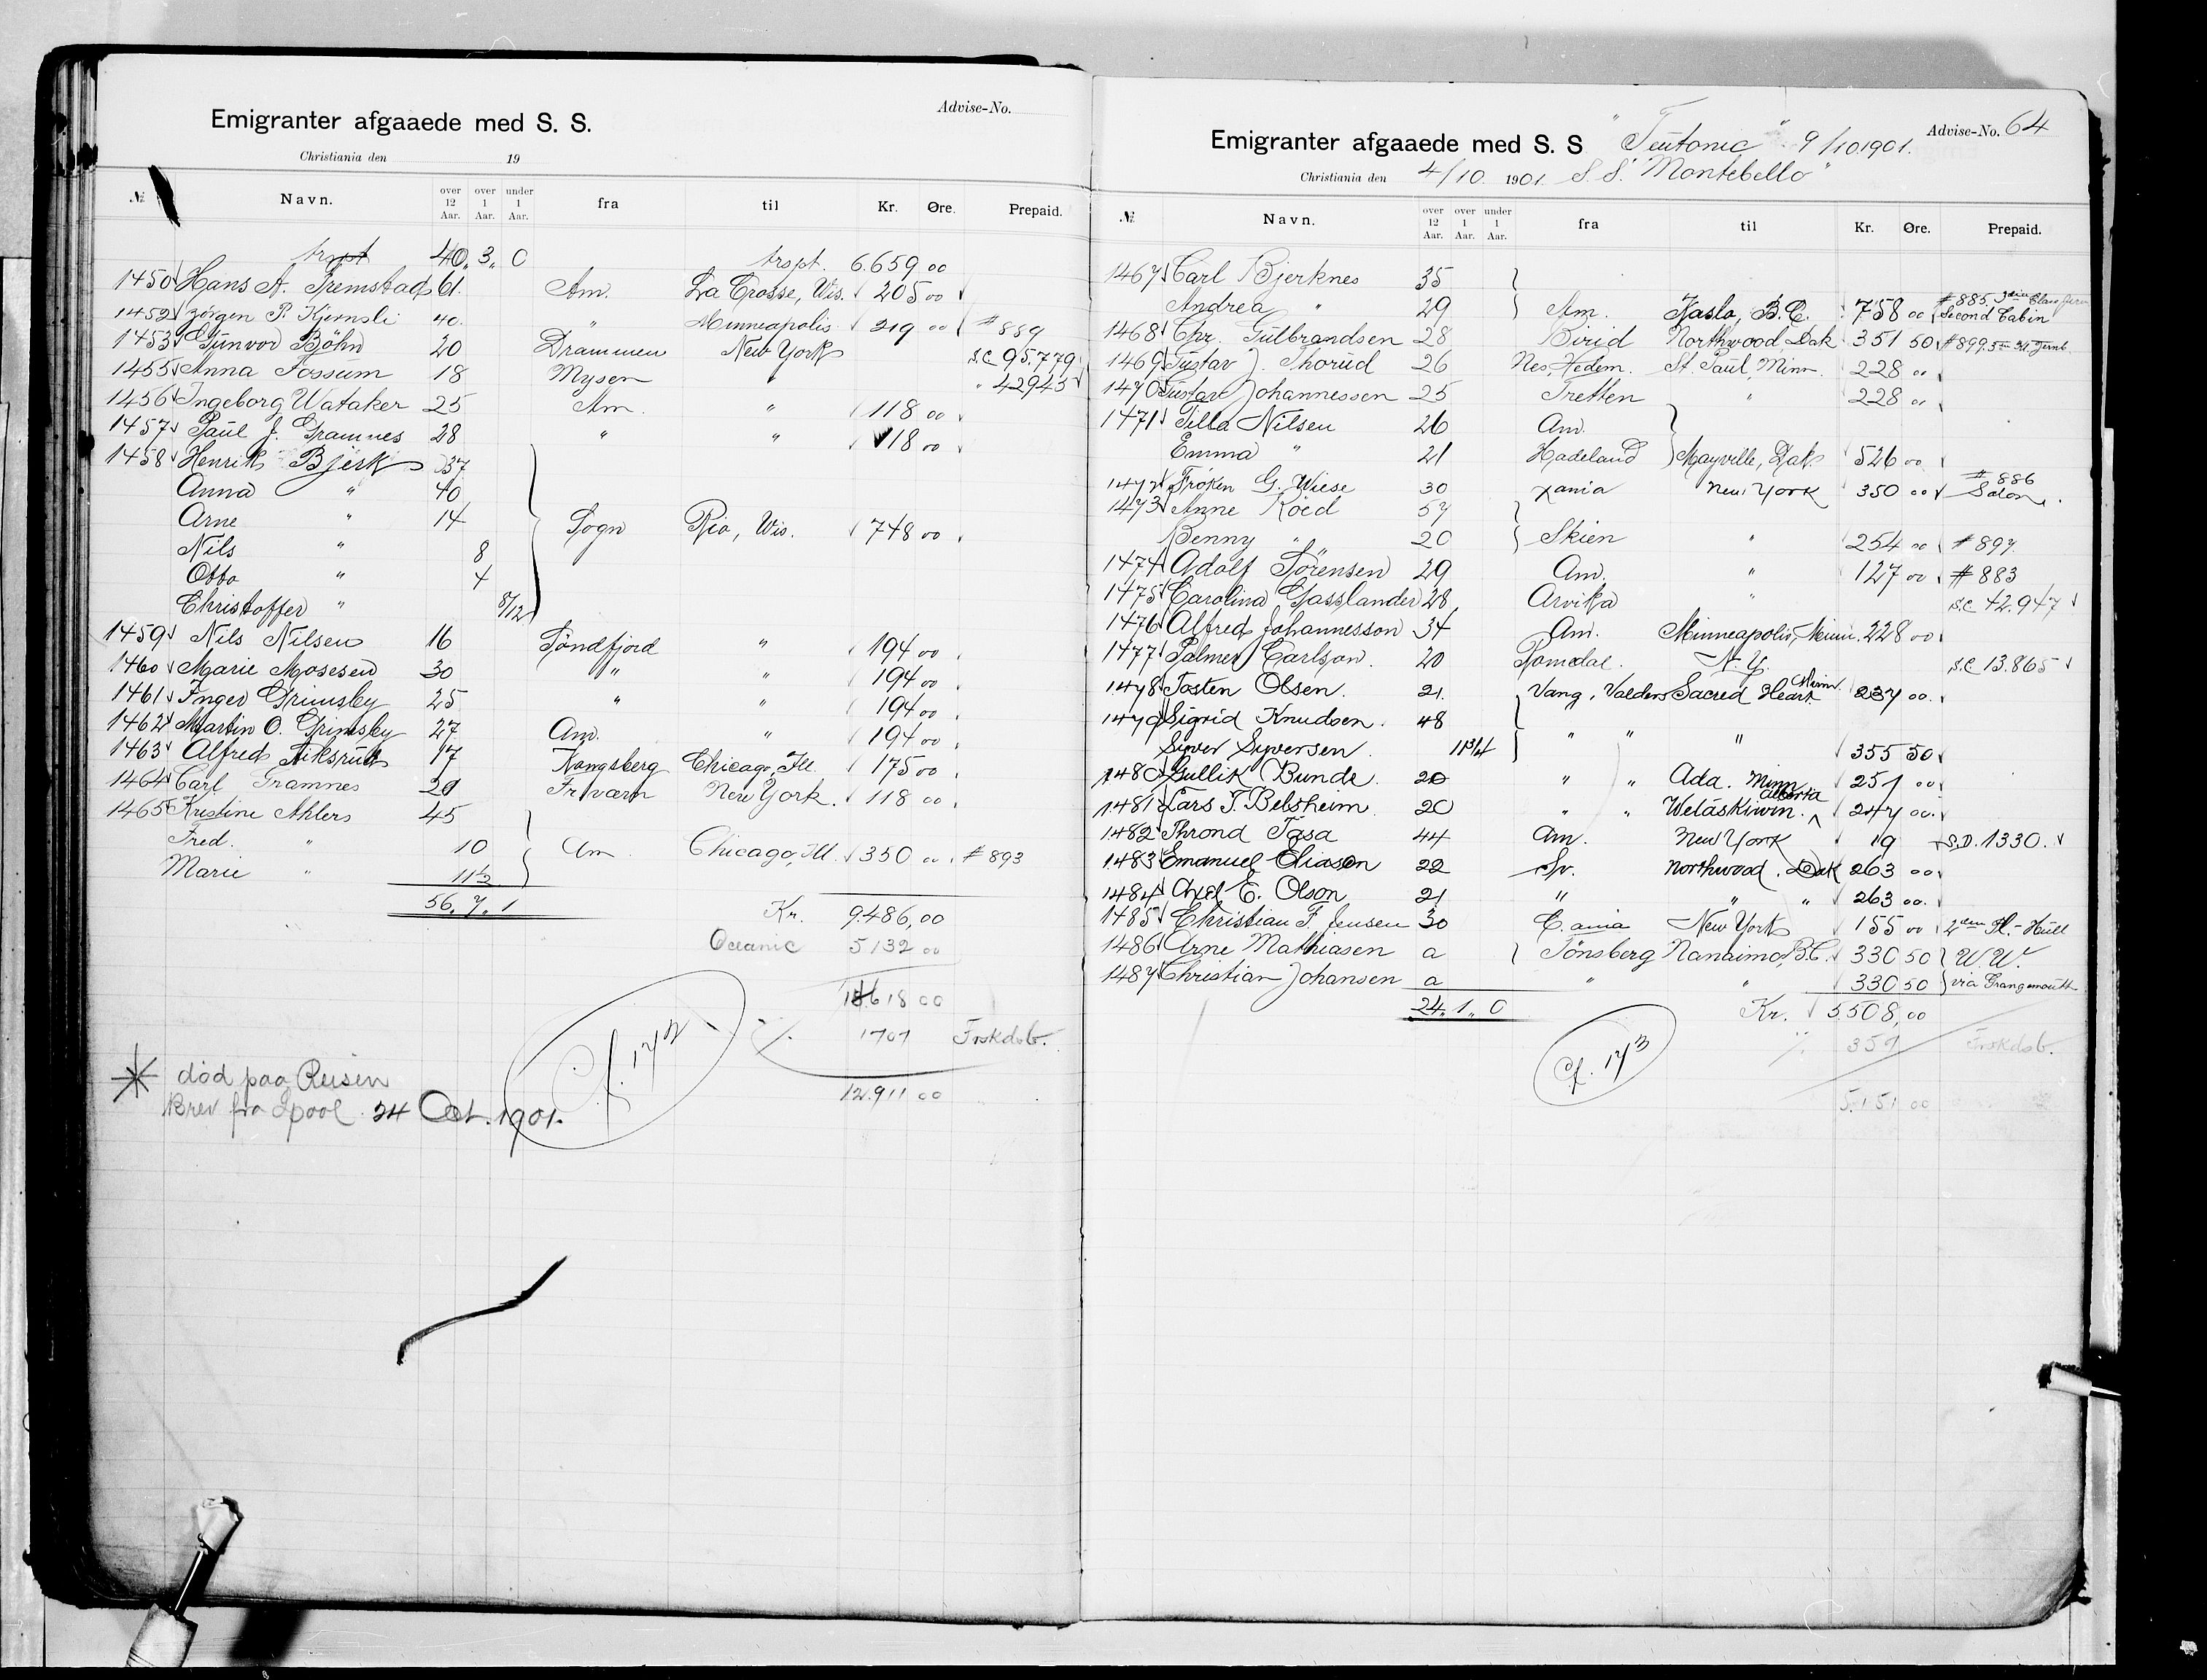 Advise-No.
Emigranter afgaaede med S. S.
Christiania den 19
№ Navn. over 12 Aar. over 1 Aar. under 1 Aar. fra til Kr. Øre. Prepaid.
trspt 40,, 3,, 0 trspt. 6.659 00
1450 Hans A. Tremstad 61 Am. La Crosse, Wis. 205 00
1452 Jörgen P. Kjernsli 40 " Minneapolis 219 00 # 889
1453 Gunvor Böhn 20 Drammen New York S.C 95.779
1455 Anna Fossum 18 Mysen " " 42945
1456 Ingeborg Wataker 25 Am. " 118 00
1457 Paul J. Gramnes 28 " " 118 00
1458 Henrik Bjerk 37
Anna " 40
Arne " 14 Sogn Rio, Wis. 748 00
Nils " 8
Otto " 4
Christoffer " 8/12
1459 Nils Nilsen 16 Söndfjord " 194 00
1460 Marie Mosesen 30 " " 194 00
1461 Inger Grimsby 25 " " 194 00
1462 Martin O. Grimsby 27 Am. " 194 00
1463 Alfred Aiksrud 17 Kongsberg Chicago, Ill 175 00
1464 Carl Gramnes 20 Fr.værn New York. 118 00
1465 Kristine Ahlers 45
Fred. " 10 Am Chicago, Ill. 350 00 # 893
Marie " 11½
56. 7. 1 Kr. 9.486,00
Oceanic 5132 00
14618 00
÷ 1707 Frskdsb.
12.911 00
Cf. 172
død paa Reisen
Brev fra Lpool 24 Oct. 1901.
Advise-No. 64
Emigranter afgaaede med S. S "Teutonic" 9/10 1901.
Christiania den 4/10. 1901. S.S. "Montebello"
№ Navn. over 12 Aar. over 1 Aar. under 1 Aar. fra til Kr. Øre. Prepaid.
1467 Carl Bjerknes 35
Andrea " 29 Am. Kaslo, B.C. 758 00 # 885 Second Cabin
1468 Chr. Gulbrandsen 28 Birid Northwood Dak 351 50 # 899.
1469 Gustav J. Thorud 26 Nes, Hedem. St. Paul, Minn. 228 "
1470 Gustav Johannessen 25 Tretten " 228 "
1471 Tilla Nilsen 26 Am.
Emma " 21 Hadeland Mayville, Dak 526 00
1472 Frøken G. Wiese 30 Xania New York 350 00 # 886 Salon
1473 Anne Röed 57
Benny " 20 Skien " 254 00 # 897
1474 Adolf Sörensen 29 Am. " 127 00 # 883
1475 Carolina Gasslander 28 Arvika " S.C 42.947
1476 Alfred Johannesson 34 Am. Minneapolis, Minn. 228 00
1477 Palmer Carlson. 20 Romsdal. N.Y. S.C 13.865
1478 Tosten Olsen. 21. Vang, Valders Sacred Heart Minn. 237 00.
1479 Sigrid Knudsen. 48
Syver Syversen. 11 3/4 " " " 355 50
1480 Gullik Bunde. 20 " " Ada. Minn 251 00
1481 Lars T. Belsheim. 20 " " Wetaskiwin. Alberta 247 00.
1482 Thrond Tasa 44 Am. New York 19 S.D. 1330.
1483 Emanuel Eliason 22 Sv. Northwood. Dak 263 00
1484 Axel E. Olson 21 " " " 263 00.
1485 Christian F. Jensen 30 C.ania New York 155 00 2den Kl.- Hull
1486 Arne Mathiasen a Tönsberg Nanaimo, B.C. 330 50 W.W.
1487 Christian Johansen a " " 330 50 via Grangemouth
24. 1. 0 Kr. 5508,00
÷ 357 Frskdsb.
5.151 00
Cf. 173